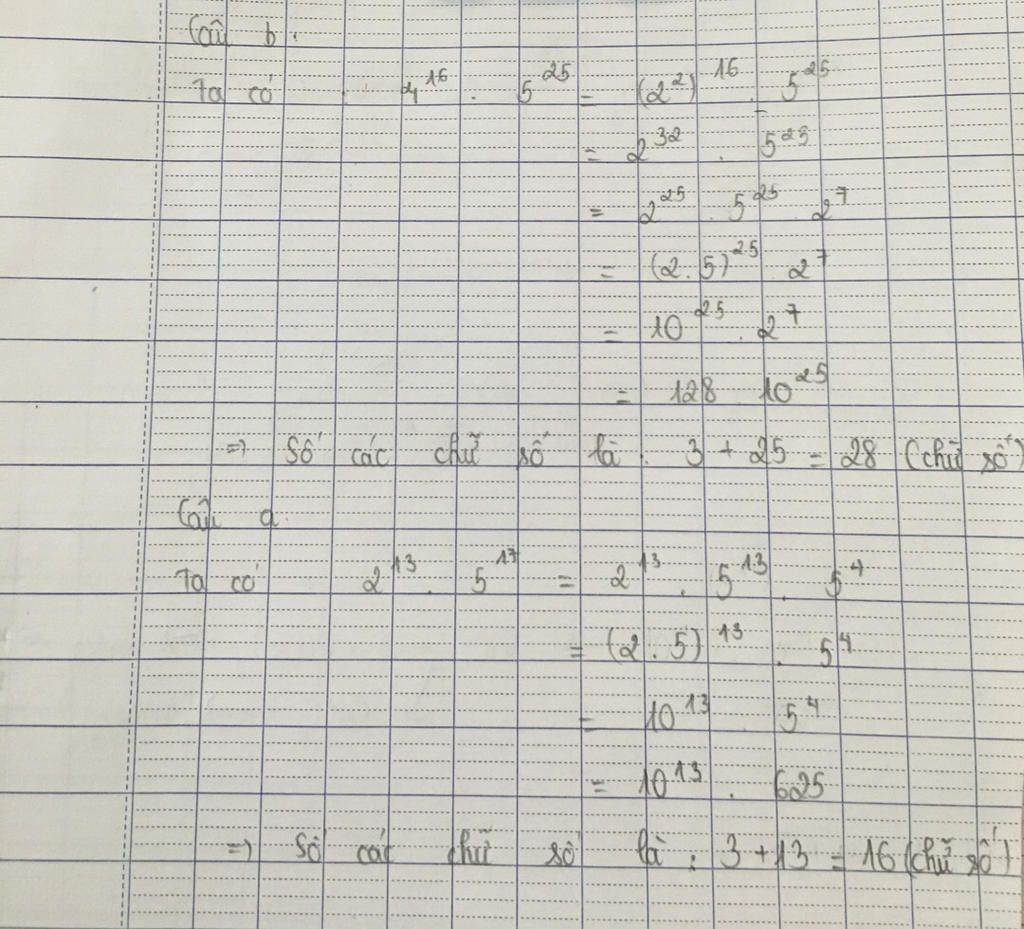 Câu b.
Ta có : 4^16 . 5^25 = (2^2)^16 . 5^25
= 2^32 . 5^25
= 2^25 . 5^25 . 2^7
= (2.5)^25 2^7
= 10^25 . 2^7
= 128 10^25
=> Số các chữ số là : 3 + 25 = 28 (chữ số)
Câu a.
Ta có 2^13 . 5^17 = 2^13 . 5^13 . 5^4
= (2.5)^13 . 5^4
= 10^13 . 5^4
= 10^13 . 625
=> Số các chữ số là : 3 + 13 = 16 (chữ số)